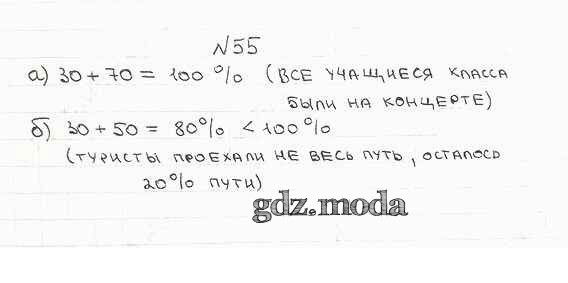 №55
а) 30 + 70 = 100 % (ВСЕ УЧАЩИЕСЯ КЛАССА
БЫЛИ НА КОНЦЕРТЕ)
б) 30 + 50 = 80% < 100%
(ТУРИСТЫ ПРОЕХАЛИ НЕ ВЕСЬ ПУТЬ, ОСТАЛОСЬ
20% ПУТИ)
gdz.moda